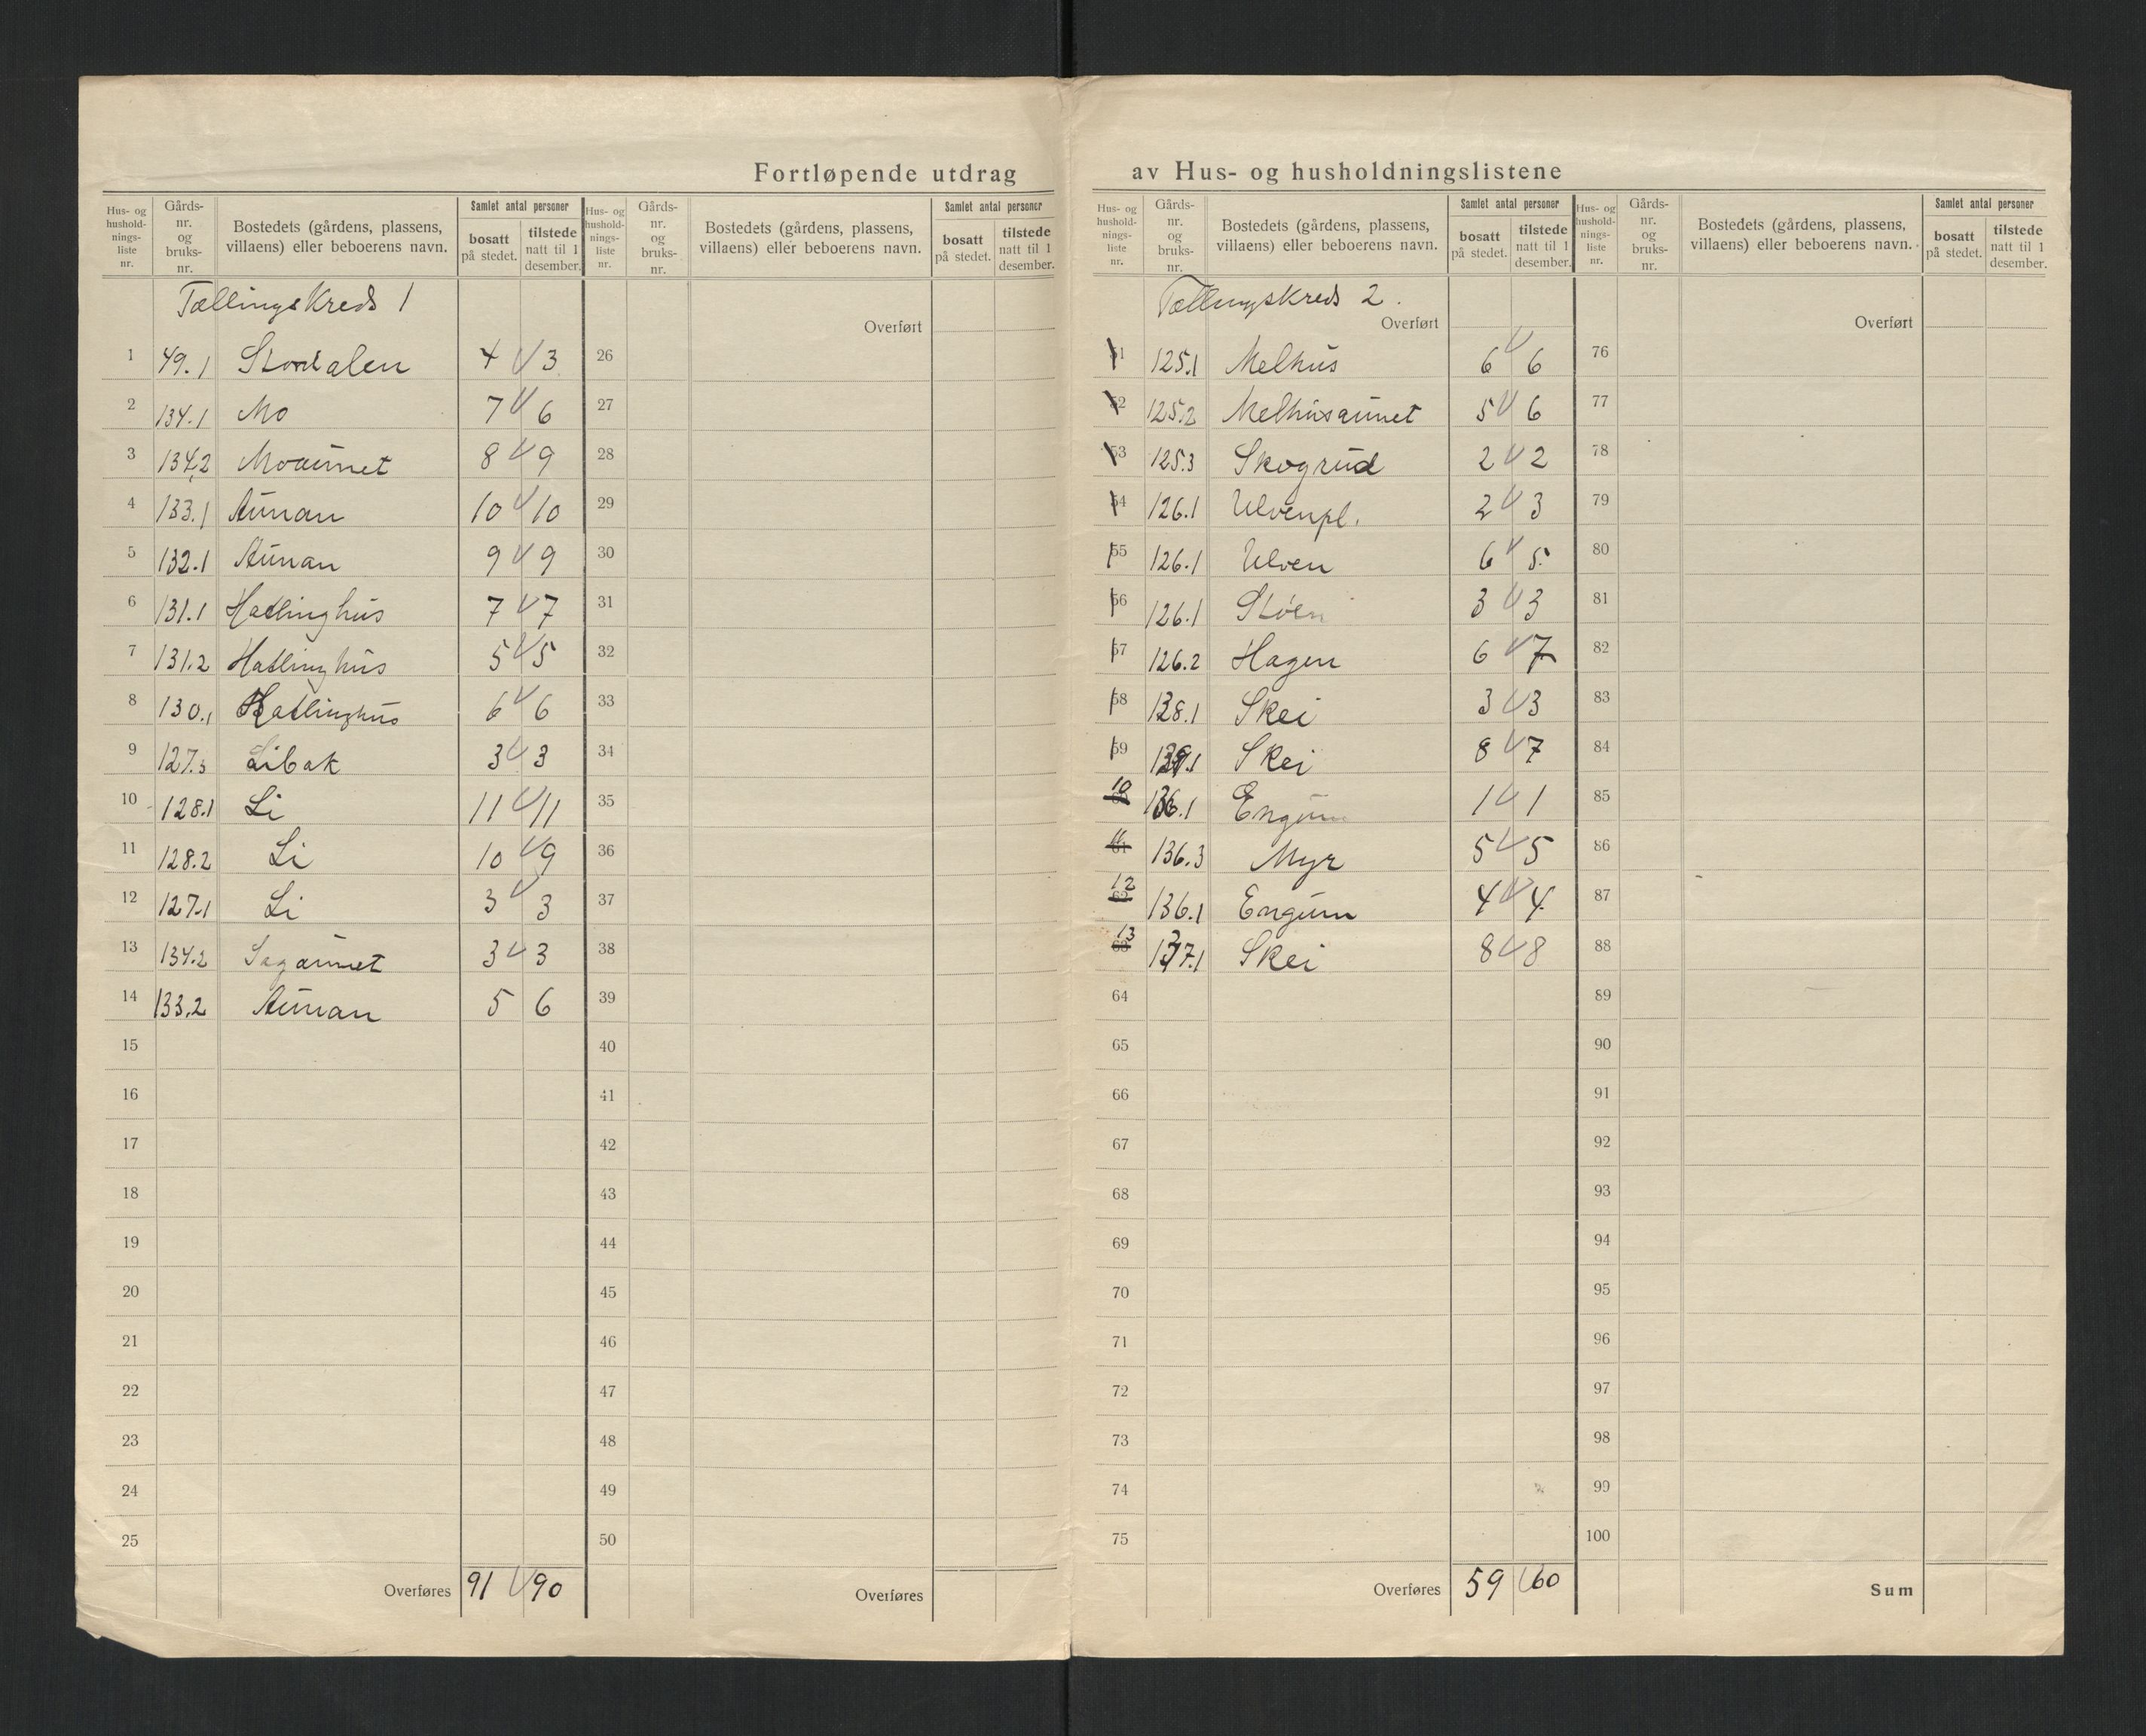 Fortløpende utdrag av Hus- og husholdningslistene
Hus- og hushold- nings- liste nr. | Gårds- nr. og bruks- nr. | Bostedets (gårdens, plassens, villaens) eller beboerens navn. | Samlet antal personer | bosatt på stedet. | tilstede natt til 1 desember.
Tællingskreds 1
1 49.1 Stordalen 4 3
2 134.1 Mo 7 6
3 134.2 Moaunet 8 9
4 133.1 Aunan 10 10
5 132.1 Aunan 9 9
6 131.1 Hatlinghus 7 7
7 131.2 Hatlinghus 5 5
8 130.1 Hatlinghus 6 6
9 127.3 Libak 3 3
10 128.1 Li 11 11
11 128.2 Li 10 9
12 127.1 Li 3 3
13 134.2 Sagaunet 3 3
14 133.2 Aunan 5 6
15
16
17
18
19
20
21
22
23
24
25
Overføres 91 90
Hus- og hushold- nings- liste nr. | Gårds- nr. og bruks- nr. | Bostedets (gårdens, plassens, villaens) eller beboerens navn. | Samlet antal personer | bosatt på stedet. | tilstede natt til 1 desember.
Overført
26
27
28
29
30
31
32
33
34
35
36
37
38
39
40
41
42
43
44
45
46
47
48
49
50
Overføres
Hus- og hushold- nings- liste nr. | Gårds- nr. og bruks- nr. | Bostedets (gårdens, plassens, villaens) eller beboerens navn. | Samlet antal personer | bosatt på stedet. | tilstede natt til 1 desember.
Tællingskreds 2.
Overført
1 125.1 Melhus 6 6
2 125.2 Melhusaunet 5 6
3 125.3 Skogrud 2 2
4 126.1 Ulvenpl. 2 3
5 126.1 Ulven 6 5
6 126.1 Støen 3 3
7 126.2 Hagen 6 7
8 138.1 Skei 3 3
9 Skei 8 7
10 136.1 Engum 1 1
11 136.3 Myr 5 5
12 136.1 Engum 4 4
13 137.1 Skei 8 8
64
65
66
67
68
69
70
71
72
73
74
75
Overføres 59 60
Hus- og hushold- nings- liste nr. | Gårds- nr. og bruks- nr. | Bostedets (gårdens, plassens, villaens) eller beboerens navn. | Samlet antal personer | bosatt på stedet. | tilstede natt til 1 desember.
Overført
76
77
78
79
80
81
82
83
84
85
86
87
88
89
90
91
92
93
94
95
96
97
98
99
100
Sum